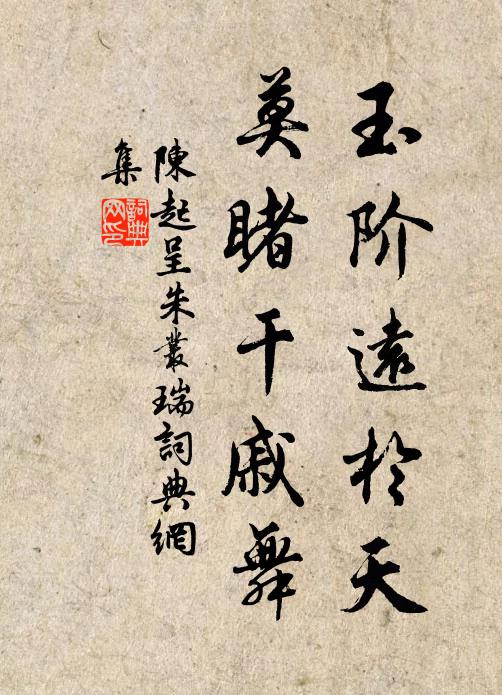 玉阶遠於天
莫睹干戚舞
陳起呈朱叢瑞詞典網
集
詞典
网印